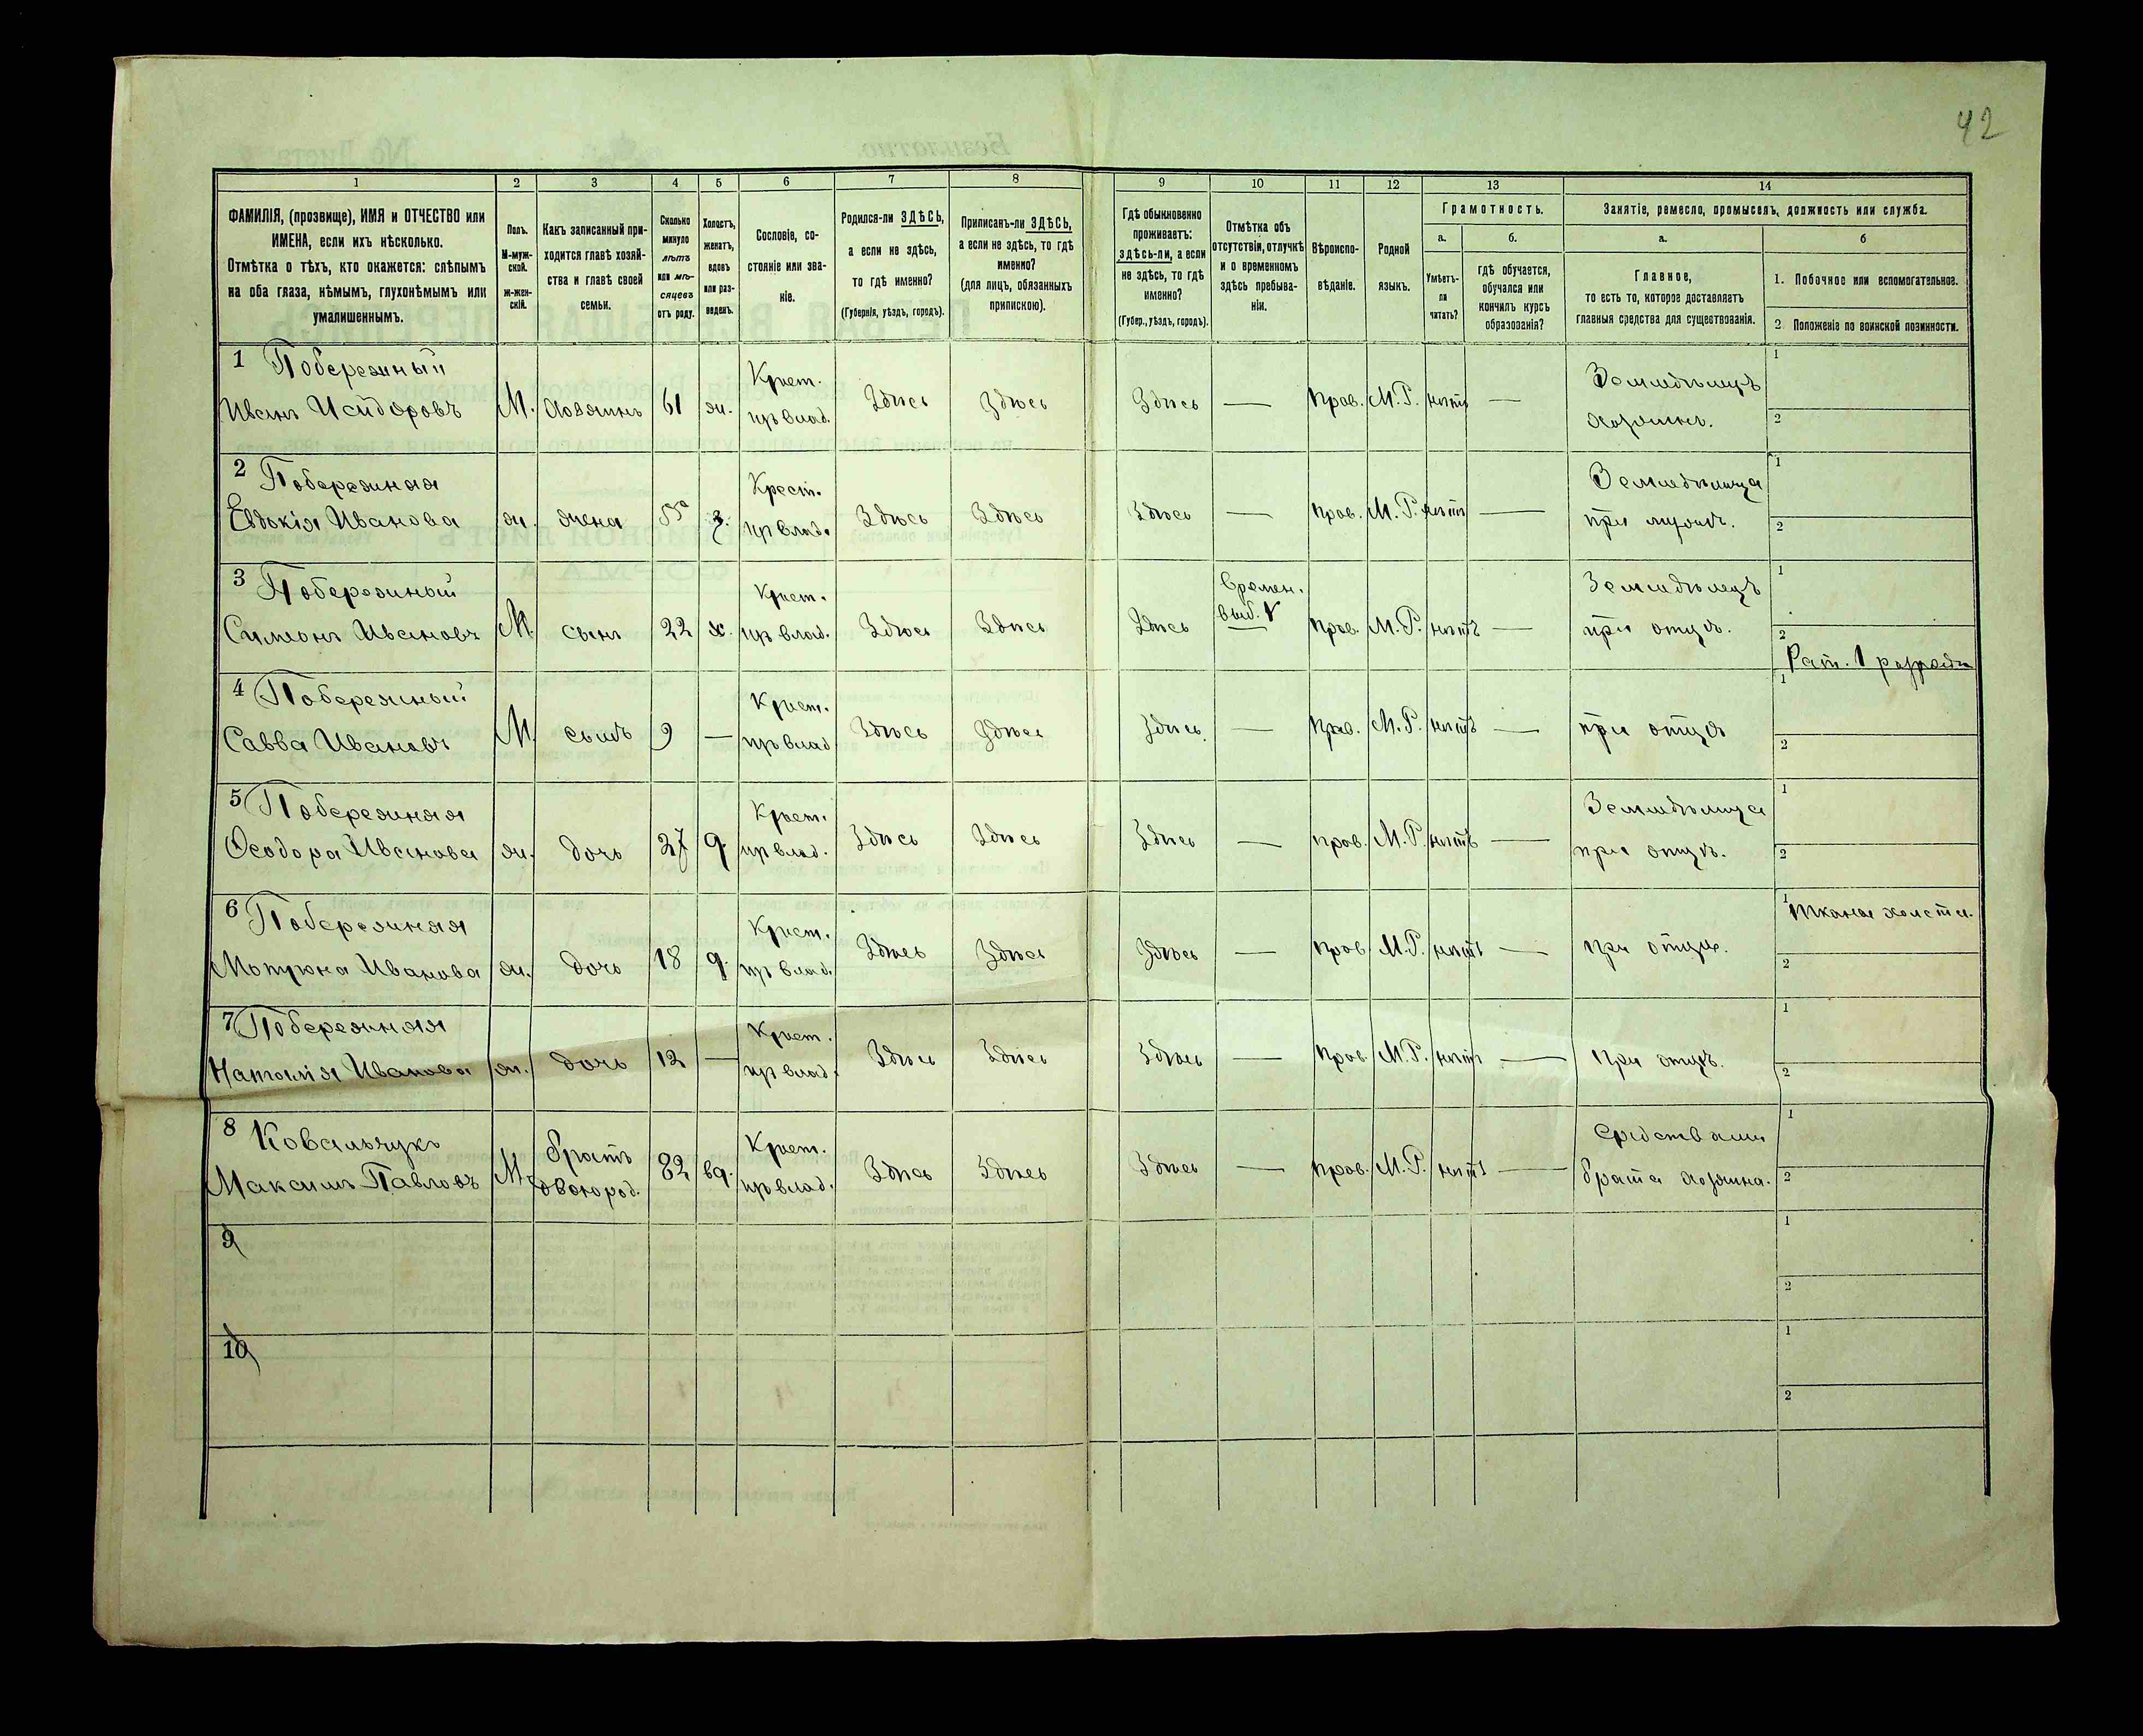 42
1 2 3 4 5 6 7 8 9 10 11 12 13 14
ФАМИЛІЯ, (прозвище), ИМЯ и ОТЧЕСТВО или
ИМЕНА, если ихъ нѣсколько.
Отмѣтка о тѣхъ, кто окажется: слѣпымъ
на оба глаза, нѣмымъ, глухонѣмымъ или
умалишеннымъ.
Полъ.
М-муж-
ской.
ж-жен-
скій.
Какъ записанный при-
ходится главѣ хозяй-
ства и главѣ своей
семьи.
Сколько
минуло
лѣтъ
или мѣ-
сяцевъ
отъ роду.
Холостъ,
женатъ,
вдовъ
или раз-
веденъ.
Сословіе, со-
стояніе или зва-
ніе.
Родился-ли ЗДѢСЬ,
а если не здѣсь,
то гдѣ именно?
(Губернія, уѣздъ, городъ).
Приписанъ-ли ЗДѢСЬ,
а если не здѣсь, то гдѣ
именно?
(для лицъ, обязанныхъ
припискою).
Гдѣ обыкновенно
проживаетъ:
здѣсь-ли, а если
не здѣсь, то гдѣ
именно?
(Губер., уѣздъ, городъ).
Отмѣтка объ
отсутствіи, отлучкѣ
и о временномъ
здѣсь пребыва-
ніи.
Вѣроиспо-
вѣданіе.
Родной
языкъ.
Грамотность.
а.
Умѣетъ-
ли
читать?
б.
гдѣ обучается,
обучался или
кончилъ курсъ
образованія?
Занятіе, ремесло, промыселъ, должность или служба.
а.
Главное,
то есть то, которое доставляетъ
главныя средства для существованія.
б
1. Побочное или вспомогательное.
2 Положеніе по воинской повинности.
1 Побережный Крест. Земледѣлецъ 1
Иванъ Исидоровъ М. хозяинъ 61 ж. из влад. Здѣсь Здѣсь Здѣсь — Прав. М.Р. нѣтъ — хозяинъ. 2
2 Побережная Крест. Земледѣлица 1
Евдокія Ивановa ж. жена 55 з. из влад. Здѣсь Здѣсь Здѣсь — Прав. М.Р. нѣтъ — при мужѣ. 2
3 Побережный Крест. Времен. Земледѣлецъ 1
Симеонъ Ивановъ М. сынъ 22 х. из влад. Здѣсь Здѣсь Здѣсь выб. Прав. М.Р. нѣтъ — при отцѣ. 2 Рат. 1 разряда
4 Побережный Крест. 1
Савва Ивановъ М. сынъ 9 — из влад. Здѣсь Здѣсь Здѣсь — Прав. М.Р. нѣтъ — при отцѣ 2
5 Побережная Крест. Земледѣлица 1
Ѳеодора Иванова ж. дочь 27 д. из влад. Здѣсь Здѣсь Здѣсь — Прав. М.Р. нѣтъ — при отцѣ. 2
6 Побережная Крест. 1 Тканье холста.
Мотрона Иванова ж. дочь 18 д. из влад. Здѣсь Здѣсь Здѣсь — Прав. М.Р. нѣтъ — при отцѣ. 2
7 Побережная Крест. 1
Наталія Иванова ж. дочь 12 — из влад. Здѣсь Здѣсь Здѣсь — Прав. М.Р. нѣтъ — При отцѣ. 2
8 Ковальчукъ братъ Крест. Средствами 1
Максимъ Павловъ М. двоюрод. 82 вд. из влад. Здѣсь Здѣсь Здѣсь — Прав. М.Р. нѣтъ — брата хозяина. 2
9 1
2
10 1
2